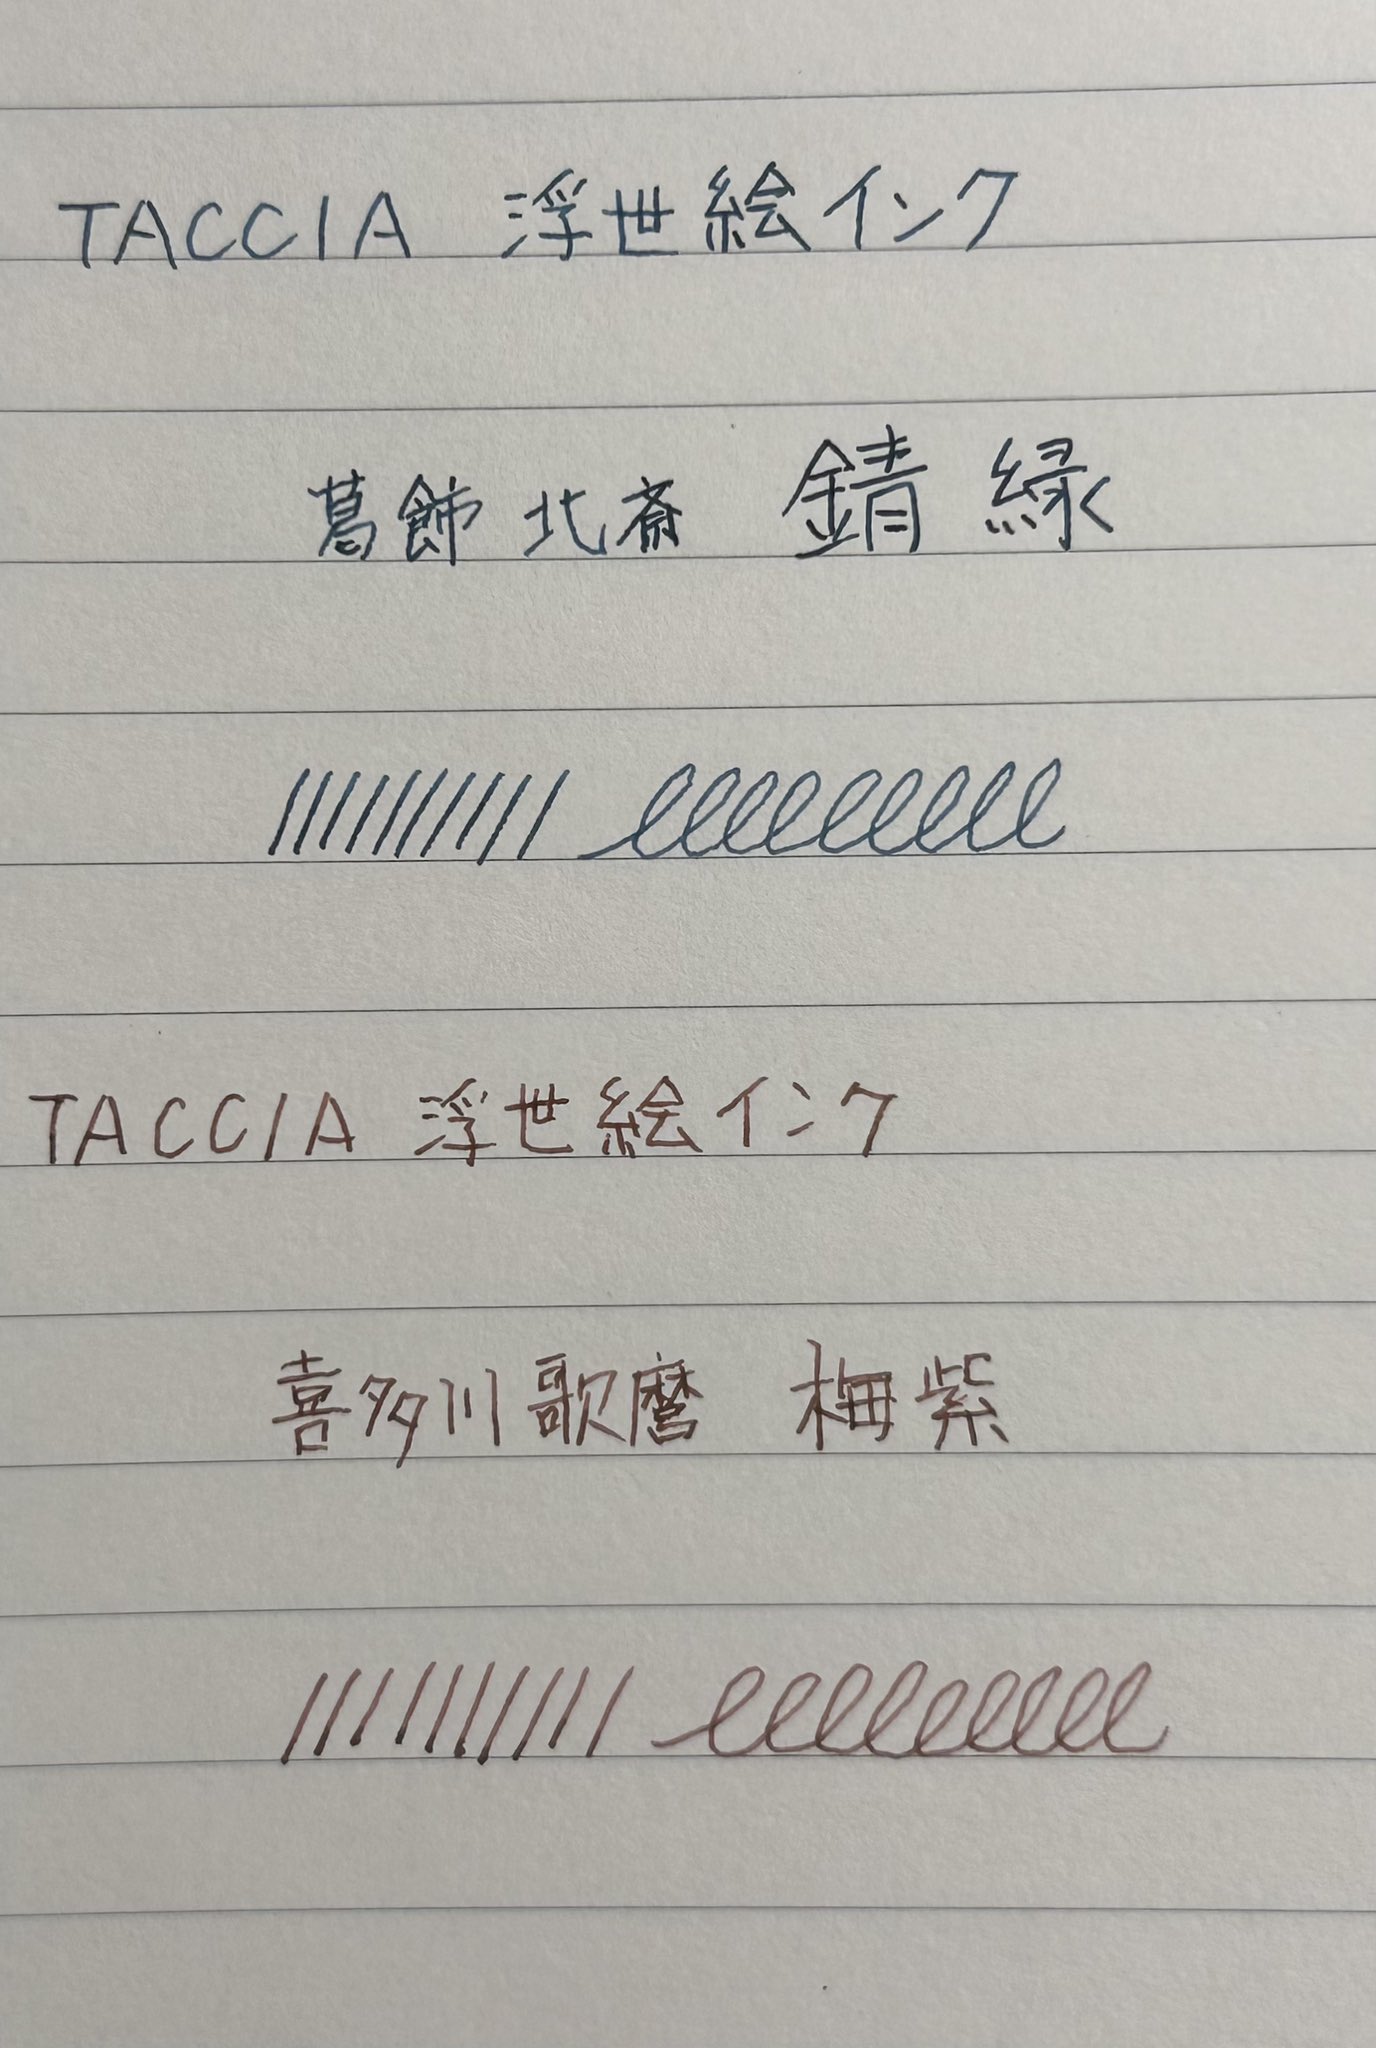 TACCIA 浮世絵インク
葛飾北斎 錆緑
TACCIA 浮世絵インク
喜多川歌麿 梅紫